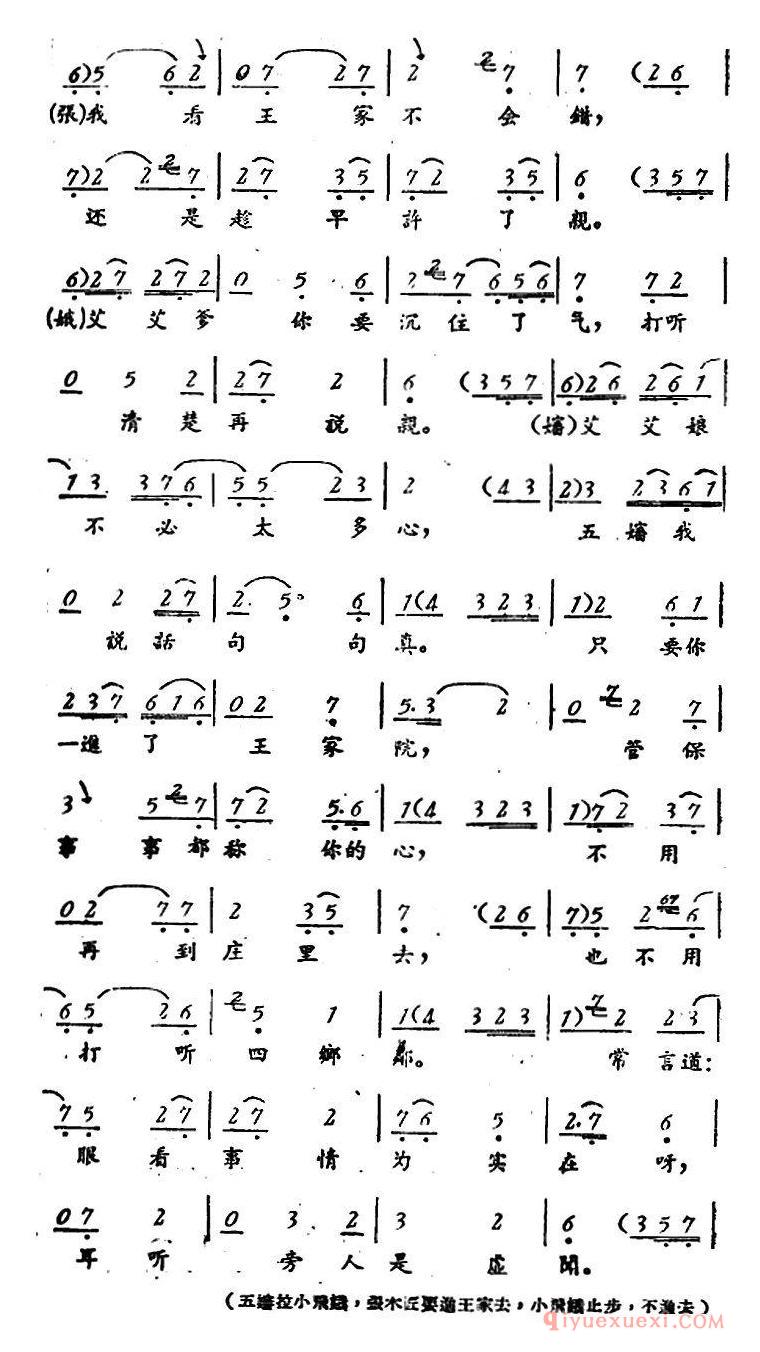 6)5 6 2 | 0 7 2 7 | 2 2 7 | 7 (2 6 |
(張)我 看 王 家 不 会 錯,
7)2 2 2 7 | 2 7 3 5 | 7 2 3 5 | 6 (3 5 7 |
还 是 趁 早 許 了 親。
6)2 7 2 7 2 | 0 5 6 | 2 2 7 6 5 6 | 7 7 2 |
(娥)艾 艾 爹 你 要 沉 住 了 气, 打听
0 5 2 | 2 7 2 | 6 (3 5 7 | 6)2 6 2 6 1 |
清 楚 再 說 親。 (嬸)艾 艾 娘
1 3 3 7 6 | 5 5 2 3 | 2 (4 3 | 2)3 2 3 6 1 |
不 必 太 多 心, 五 嬸 我
0 2 2 7 | 2. 5 6 | 1(4 3 2 3 | 1)2 6 1 |
説 話 句 句 真。 只 要你
2 3 7 6 1 6 | 0 2 7 | 5.3 2 | 0 7 2 7 |
一進 了 王 家 院, 管 保
3 5 2 7 | 7 2 5.6 | 1(4 3 2 3 | 1)7 2 3 7 |
事 事 都 称 你的 心, 不 用
0 2 7 7 | 2 3 5 | 7 (2 6 | 7)5 2 67 6 |
再 到 庄 里 去, 也 不 用
6 5 2 6 | 2 5 1 | 1(4 3 2 3 | 1) 7 2 2 3 |
打 听 四 鄉 鄰。 常 言 道:
7 5 2 7 | 2 7 2 | 7 6 5 | 2.7 6 |
眼 看 事 情 为 实 在 呀,
0 7 2 | 0 3 2 | 3 2 | 6 (3 5 7 |
耳 听 旁 人 是 虚 聞。
(五嬸拉小飛娥,張木匠要進王家去,小飛娥止步,不進去)
qiyuexuexi.com